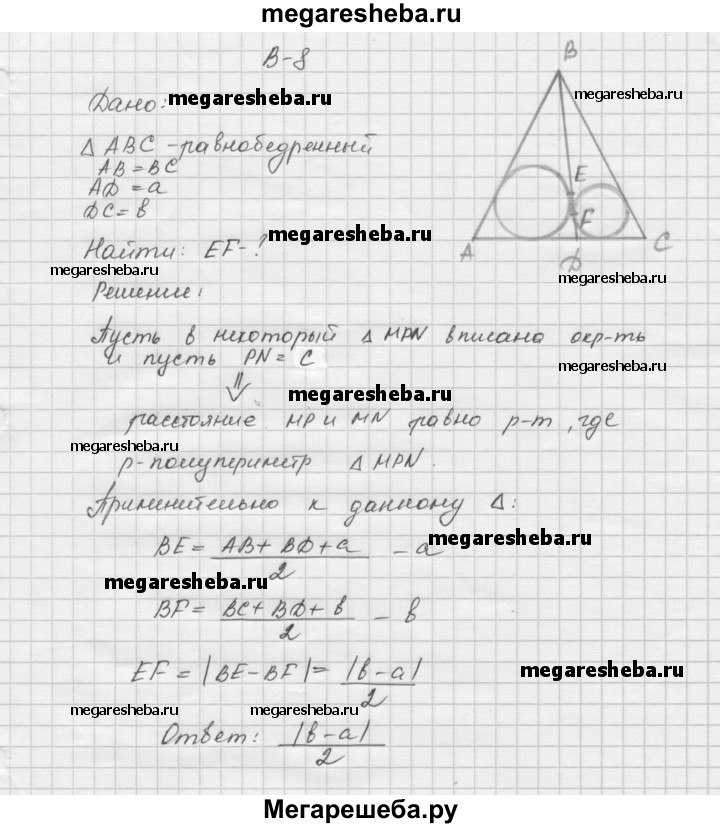 megaresheba.ru
В-8
Дано: megaresheba.ru
megaresheba.ru
B
Δ ABC - равнобедренный
AB = BC
AD = a
DC = в
E
F
Найти: EF - ? megaresheba.ru
A
D
C
megaresheba.ru
megaresheba.ru
Решение:
Пусть в некоторый Δ MPN вписана окр-ть
и пусть PN = C
megaresheba.ru
⇓
megaresheba.ru
расстояние MP и MN равно p-m, где
megaresheba.ru
megaresheba.ru
p - полупериметр Δ MPN.
Применительно к данному Δ:
BE = (AB + BD + a)/2 - a megaresheba.ru
megaresheba.ru
BF = (BC + BD + в)/2 - в
EF = |BE - BF| = |в - a|/2 megaresheba.ru
megaresheba.ru megaresheba.ru
Ответ: |в - a|/2
Мегарешеба.ру